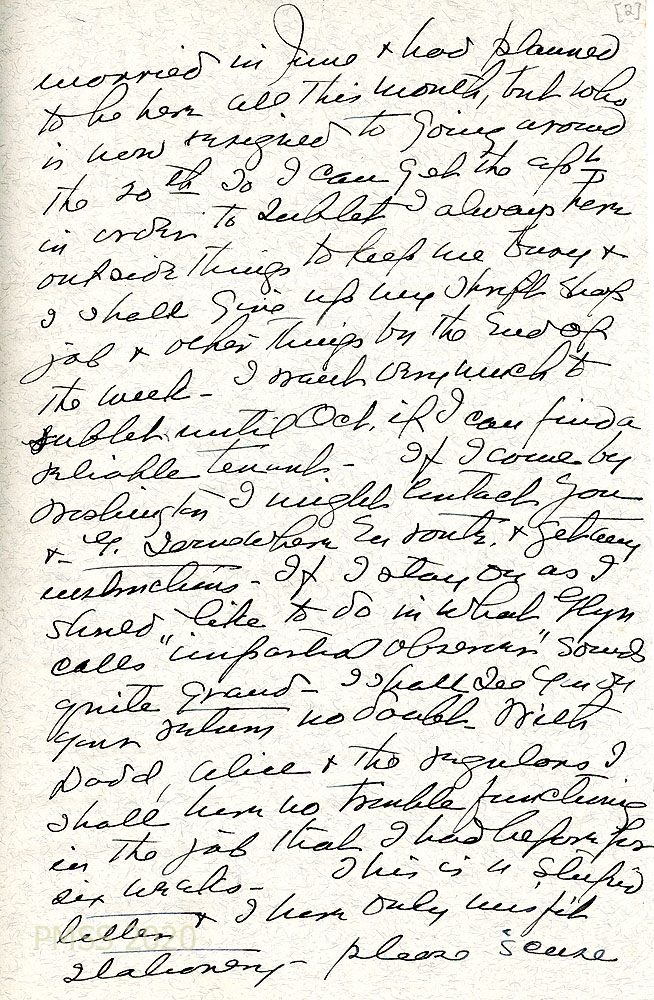 [2]
married in June & had planned
to be here all this month, but who
is now resigned to going around
the 20th So I can get the apt
in order to sublet I always have
outside things to keep me busy &
I shall give up my Thrift Shop
job & other things by the End of
the week - I want very much to
sublet until Oct. if I can find a
reliable tenant - If I come by
Washington I might Contact you
& G. Somewhere En route, & get my
instructions - If I stay on as I
should like to do in what Glyn
calls "impartial observer" Sounds
quite Grand - I shall See you on
your return no doubt - With
Dodd, Alice & the regulars I
shall have no trouble functioning
in the job that I had before for
six weeks - This is a Stupid
letter & I have only misfit
stationery - please 'scuse
PMSS 2020